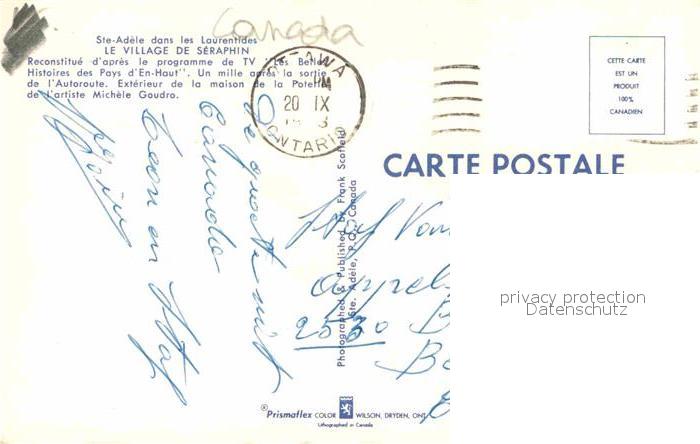 Canada
Ste-Adèle dans les Laurentides
LE VILLAGE DE SÉRAPHIN
Reconstitué d'après le programme de TV "Les Belles
Histoires des Pays d'En-Haut". Un mille après la sortie
de l'Autoroute. Extérieur de la maison de la Poterie
de l'artiste Michèle Goudro.
OTTAWA
PM
20 IX
ONTARIO
CETTE CARTE
EST UN
PRODUIT
100%
CANADIEN
CARTE POSTALE
De groeten uit
Canada
Leon en Staf
Photographed & Published by Frank Scofield
Ste. Adèle, P.Q., Canada
Staf Van
2530 B
privacy protection
Datenschutz
® Prismaflex COLOR WILSON, DRYDEN, ONT.
Lithographed in Canada